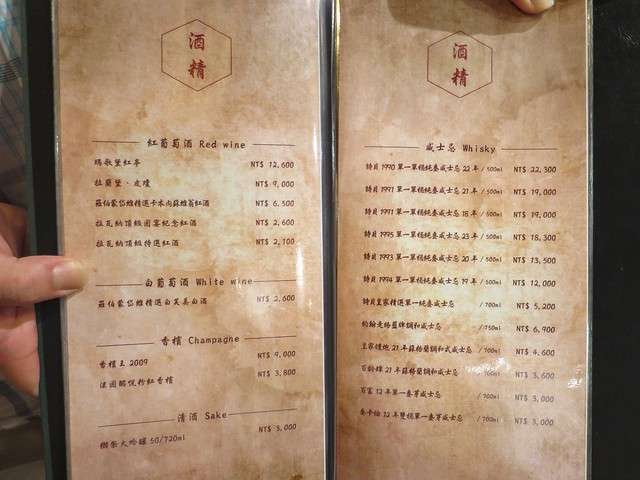 酒
精
紅葡萄酒 Red wine
瑪歌堡紅亭 NT$ 12,600
拉蘭堡·皮瓊 NT$ 9,000
羅伯蒙岱維精選卡本內蘇維翁紅酒 NT$ 6,500
拉瓦納頂級國宴紀念紅酒 NT$ 2,600
拉瓦納頂級特選紅酒 NT$ 2,100
白葡萄酒 White wine
羅伯蒙岱維精選白芙美白酒 NT$ 2,600
香檳 Champagne
香檳王 2009 NT$ 9,000
法國酩悅粉紅香檳 NT$ 3,800
清酒 Sake
獺祭大吟釀 50/720ml NT$ 3,000
酒
精
威士忌 Whisky
特貝 1990 單一單桶純麥威士忌 22 年 / 500ml NT$ 22,300
特貝 1991 單一單桶純麥威士忌 21 年 / 500ml NT$ 19,000
特貝 1991 單一單桶純麥威士忌 18 年 / 500ml NT$ 19,000
特貝 1995 單一單桶純麥威士忌 23 年 / 500ml NT$ 18,300
特貝 1993 單一單桶純麥威士忌 20 年 / 500ml NT$ 13,500
特貝 1994 單一單桶純麥威士忌 19 年 / 500ml NT$ 12,000
特貝皇家精選單一純麥威士忌 / 700ml NT$ 5,200
約翰走路藍牌調和威士忌 / 750ml NT$ 6,900
皇家禮炮 21 年蘇格蘭調和式威士忌 / 700ml NT$ 4,600
百齡罈 21 年蘇格蘭調和威士忌 / 700ml NT$ 3,600
百富 12 年單一麥芽威士忌 / 700ml NT$ 3,000
麥卡倫 12 年雙桶單一麥芽威士忌 / 700ml NT$ 3,000